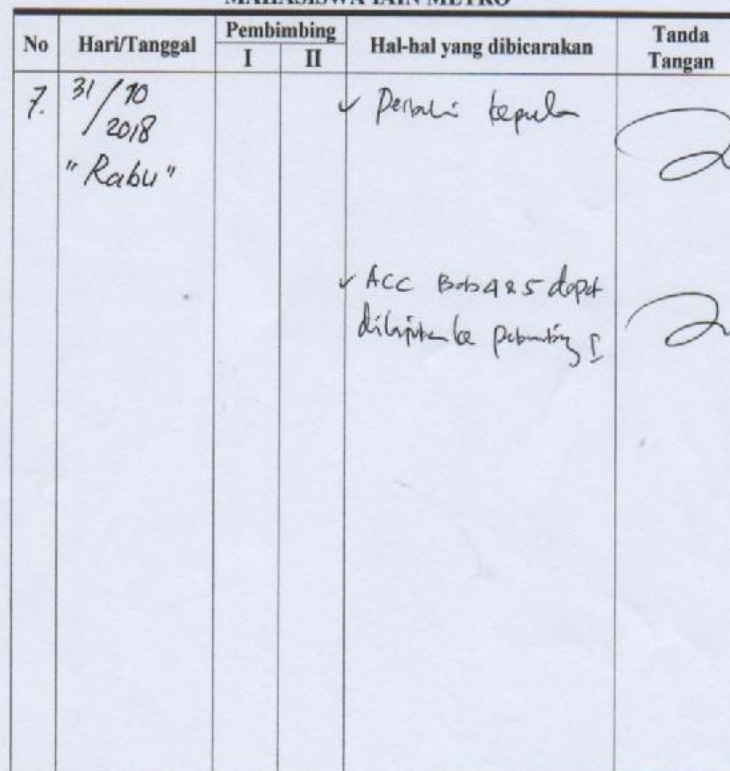 MAHASISWA IAIN METRO
No Hari/Tanggal Pembimbing Hal-hal yang dibicarakan Tanda Tangan
I II
7. 31/10 2018 "Rabu"
✓ Perbaiki
✓ ACC Bab 4 & 5 dapat
dilanjutkan ke pembimbing I